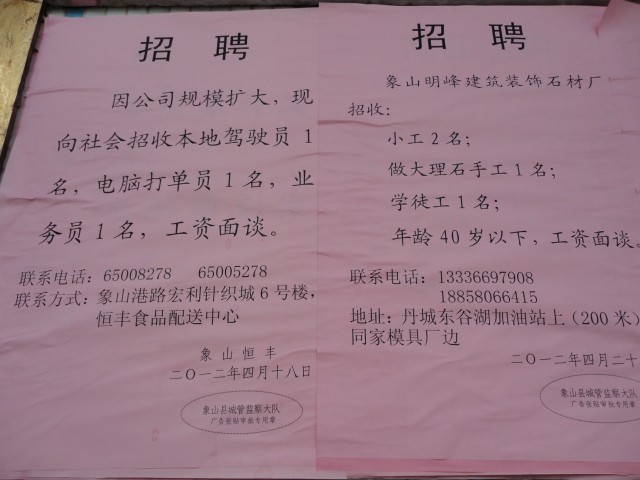 招 聘
因公司规模扩大，现
向社会招收本地驾驶员 1
名，电脑打单员 1 名，业
务员 1 名，工资面谈。
联系电话：65008278 65005278
联系方式：象山港路宏利针织城 6 号楼，
恒丰食品配送中心
象 山 恒 丰
二〇一二年四月十八日
象山县城管监察大队
广告张贴审批专用章
招 聘
象山明峰建筑装饰石材厂
招收：
小工 2 名；
做大理石手工 1 名；
学徒工 1 名；
年龄 40 岁以下，工资面谈。
联系电话：13336697908
18858066415
地址：丹城东谷湖加油站上（200 米）
同家模具厂边
二〇一二年四月二十
象山县城管监察大队
广告张贴审批专用章